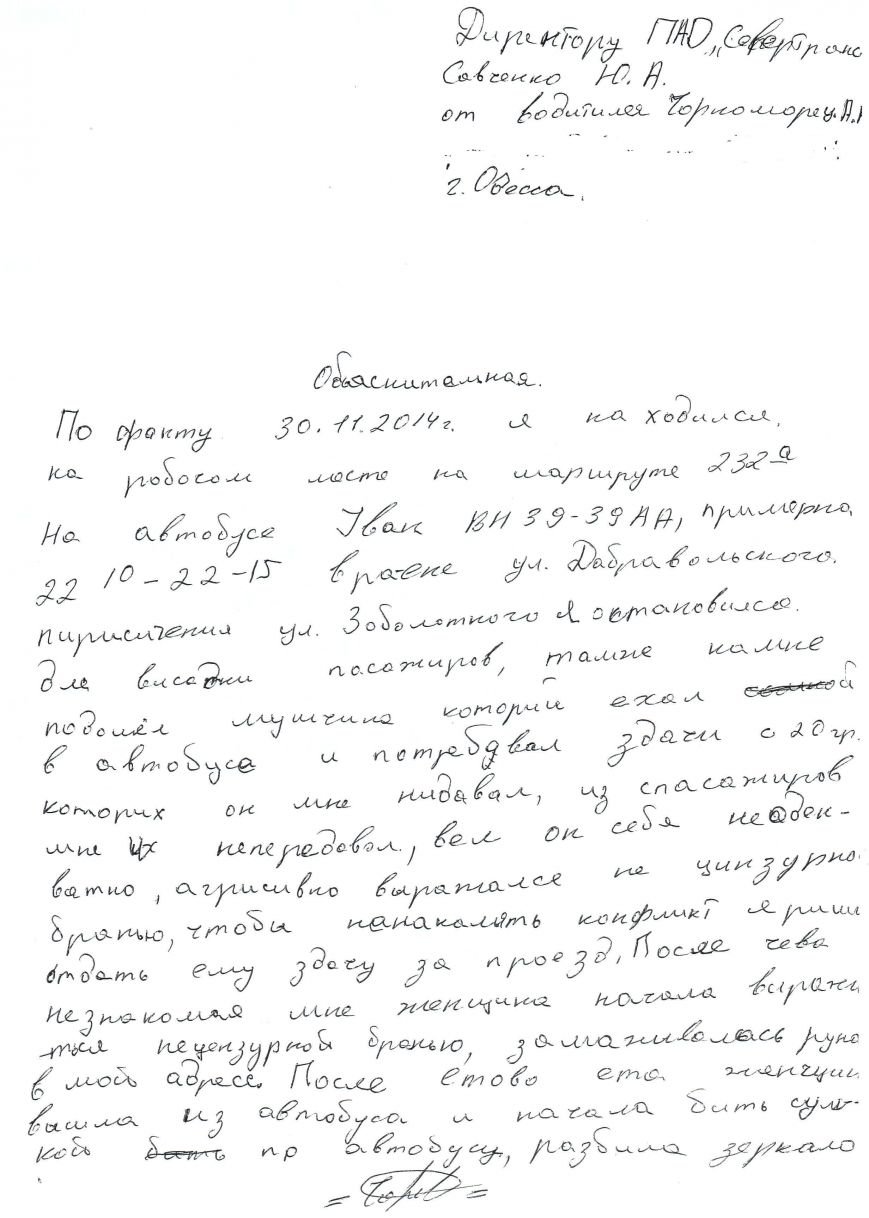 Директору ПАО „Северtранс
Савченко Ю. А.
от водитилея Чорноморец. А.
г. Одесса.
Обьяснитальная.
По факту 30.11.2014г. я на ходился,
на робочом месте на маршруте 232а
На автобусе Iван ВН 39-39 АА, примерно
22 10 - 22 - 15 в ул. Дабравольского.
пирисичения ул. Зоболотного Я остановился.
для висадки пасажиров, там не
подошёл мущина которий ехал
в автобусе и потребовал здачи с 20 гр.
которих он мне нидавал, из спасажиров
мне их непередовал, вел он себя неаден-
ватно, агрисивно выражался не цинзурно
бранью, чтобы нанакалять конфликт я риши
отдать ему здачу за проезд. После чева
незнакомая мне женщина начала виражи
ться нецензурной бранью, замахивалась руно
в мой адресс. После етово ета женщин
вышла из автобуса и начала бить сум-
кой по автобусу, разбила зеркало